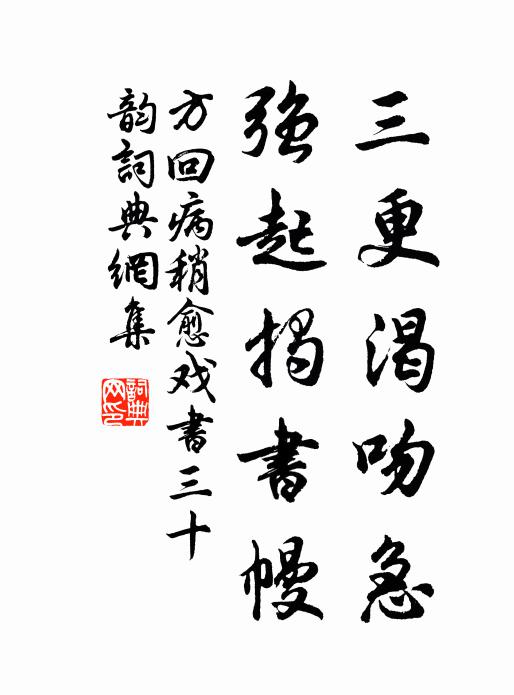 三更渴吻急
強起揭書幔
方回病稍愈戏書三十
韵詞典網集
詞典网印